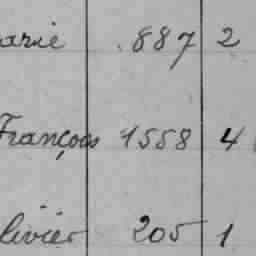 arie 887 2
François 1558 4
livier 205 1